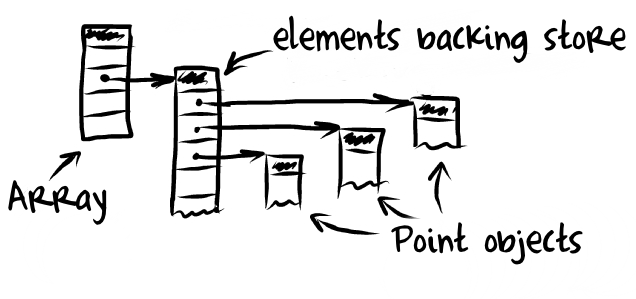 elements backing store
ARRAY
Point objects